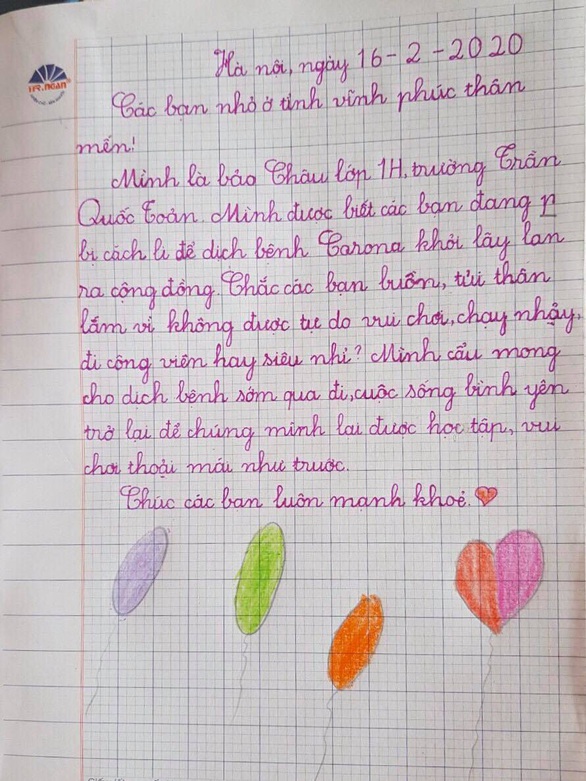 HR.NGAN
Hà nôi, ngày 16-2-2020
Các bạn nhỏ ở tỉnh vĩnh phúc thân
mến!
Mình là bảo Châu lớp 1H, trường Trần
Quốc Toản. Mình được biết các bạn đang p
bị cách li để dịch bệnh Carona khỏi lây lan
ra cộng đồng. Chắc các bạn buồn, tủi thân
lắm vì không được tự do vui chơi, chạy nhậy,
đi công viên hay siêu nhị? Mình cầu mong
cho dịch bệnh sớm qua đi, cuộc sống bình yên
trở lại để chúng mình lại được học tập, vui
chơi thoải mái như trước.
Chúc các bạn luôn mạnh khoẻ.